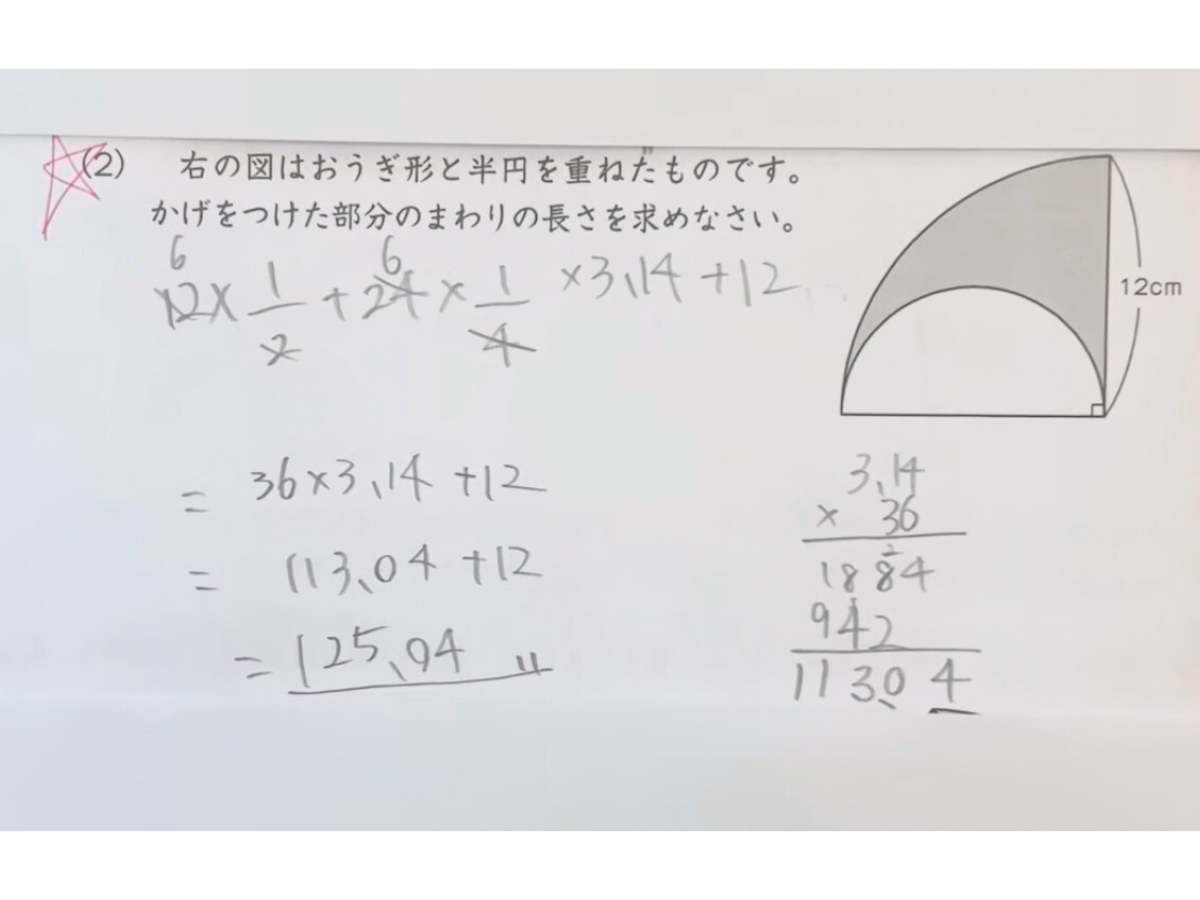 (2) 右の図はおうぎ形と半円を重ねたものです。
かげをつけた部分のまわりの長さを求めなさい。
12cm
6 6
12 × 1/2 + 24 × 1/4 × 3.14 + 12
= 36 × 3.14 + 12
= 113.04 + 12
= 125.04 〃
3.14
× 36
18 2 84
942
1130 4